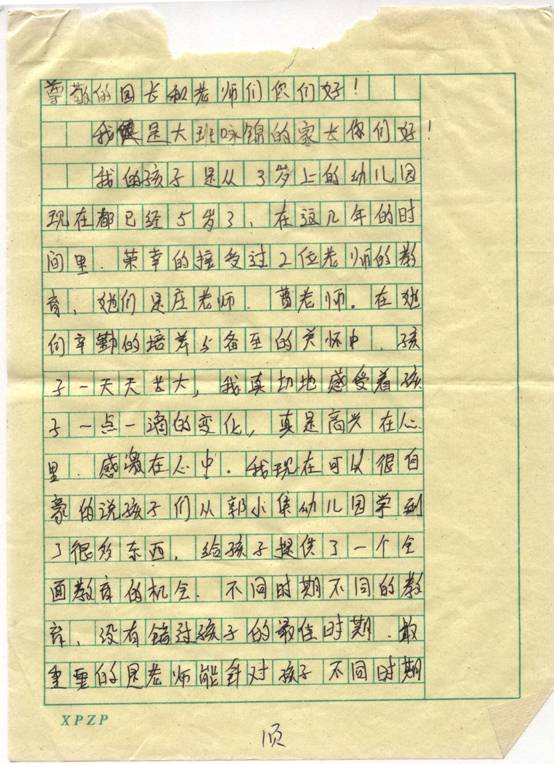 尊敬的园长和老师们你们好！
我是大班咏锦的家长你们好！
我的孩子是从3岁上的幼儿园
现在都已经5岁了、在这几年的时
间里.荣幸的接受过2位老师的教
育、她们是庄老师、曹老师。在她
们辛勤的培养与备至的关怀中.孩
子一天天长大，我真切地感受着孩
子一点一滴的变化，真是高兴在心
里.感激在心中。我现在可以很自
豪的说孩子们从郭小集幼儿园学到
了很多东西.给孩子提供了一个全
面教育的机会.不同时期不同的教
育、没有错过孩子的最佳时期.最
重要的是老师能针对孩子不同时期
XPZP
1页